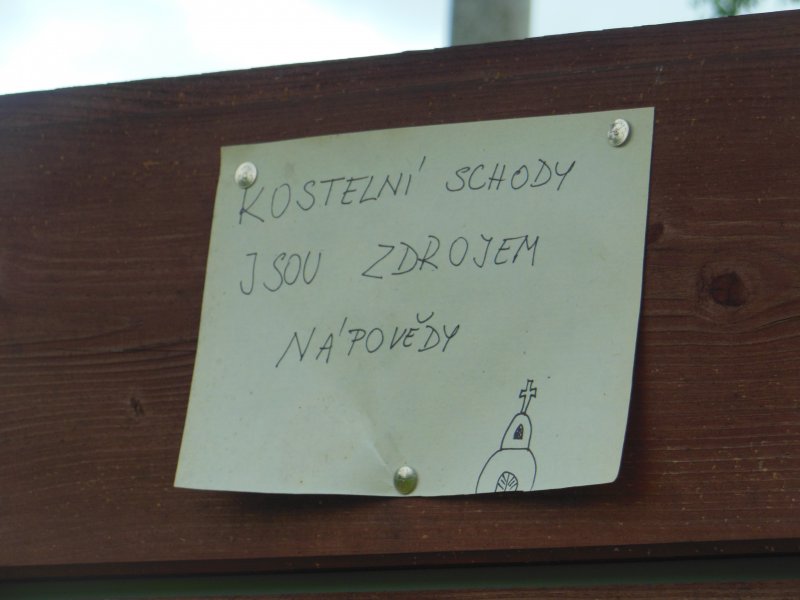 KOSTELNÍ SCHODY
JSOU ZDROJEM
NÁPOVĚDY